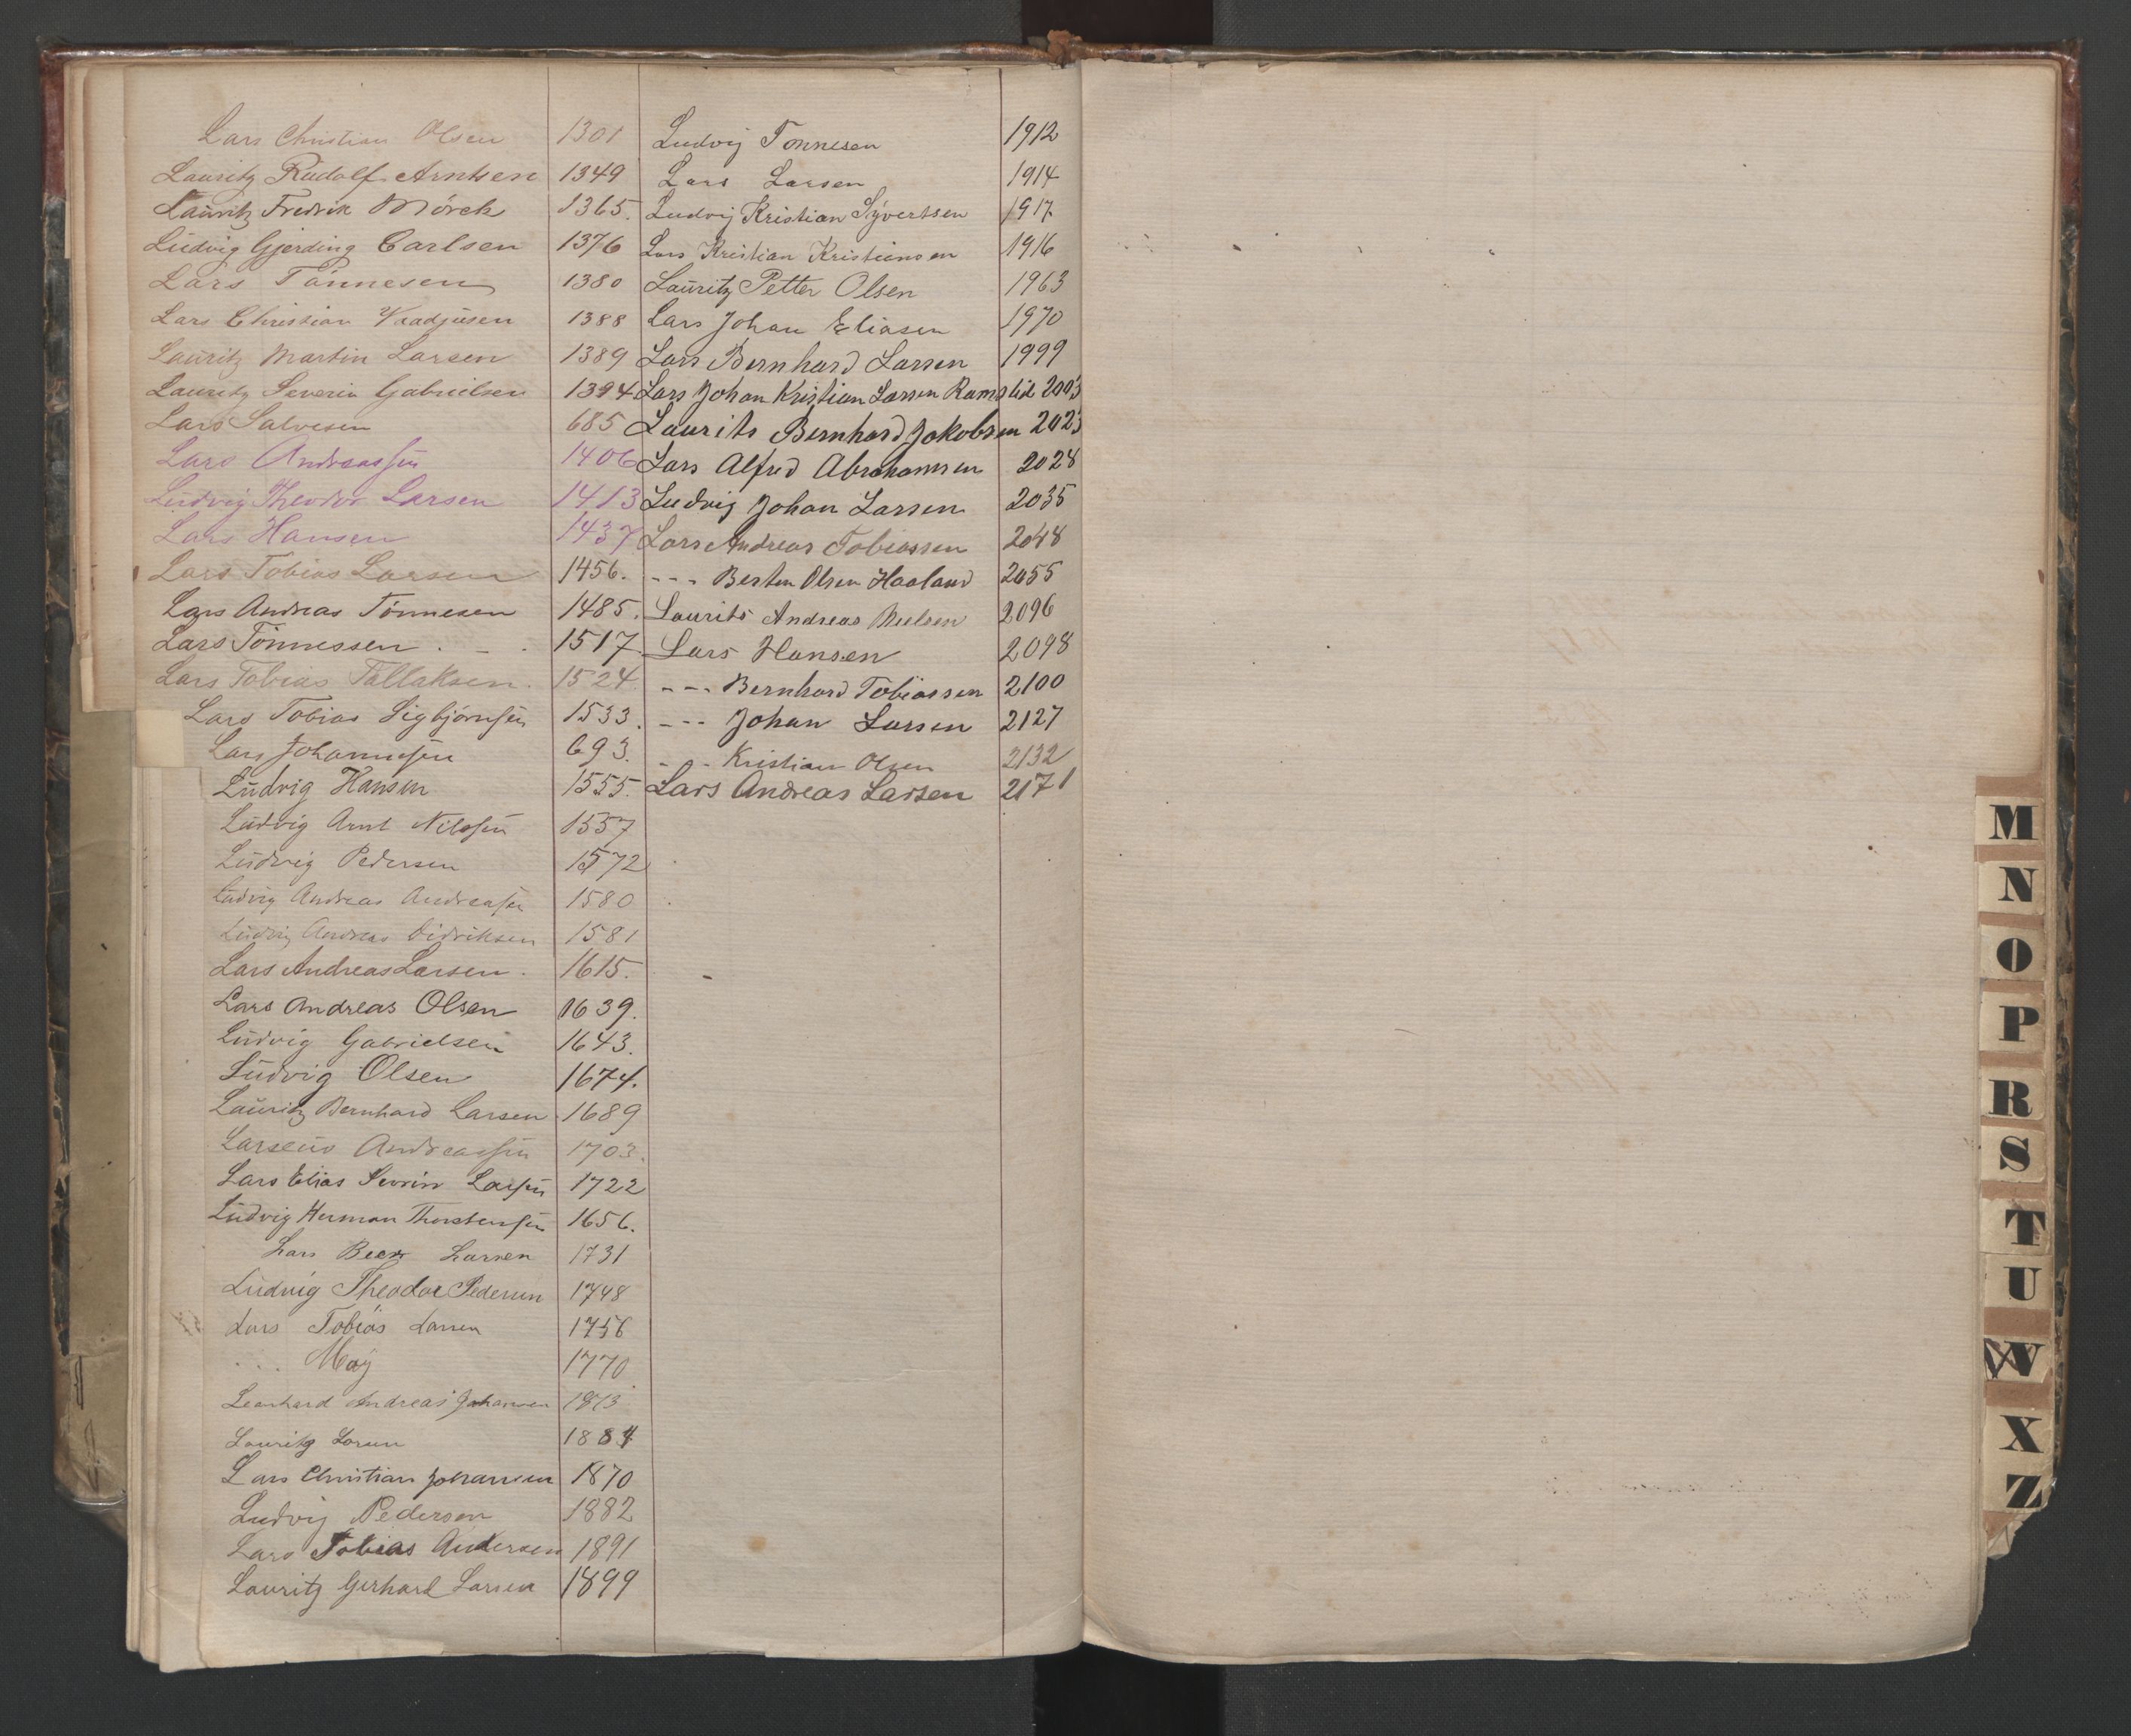 Lars Christian Olsen 1301
Lauritz Rudolf Arntsen 1349
Lauritz Fredrik Mörck 1365.
Ludvig Gjerding Carlsen 1376
Lars Tönnesen 1380
Lars Christian 1388
Lauritz Martin Larsen 1389
Lauritz Severin Gabrielsen 1394
Lars Salvesen 685
Lars Andreassen 1406
Ludvig Theodor Larsen 1413
Lars Hansen 1437
Lars Tobias Larsen 1456.
Lars Andreas Tönnesen 1485.
Lars Tönnessen . - . 1517
Lars Tobias Tallaksen. 1524
Lars Tobias Sigbjörnsen 1533.
Lars Johannesen 693.
Ludvig Hansen 1555.
Ludvig Arnt Nilssen 1557
Ludvig Pedersen 1572
Ludvig Andreas Andreasen 1580
Ludvig Andreas Didriksen 1581
Lars Andreas Larsen. 1615.
Lars Andreas Olsen 1639.
Ludvig Gabrielsen 1643.
Ludvig Olsen 1674.
Lauritz Bernhard Larsen 1689
Larseus Andreassen 1703.
Lars Elias Sevrin Larsen 1722
Ludvig Herman Thorstensen 1656.
Lars Larsen 1731
Ludvig Theodor Pedersen 1748
Lars Tobias Larsen 1756
. . . Maÿ 1770
Leonhard Andreas Johansen
Lauritz Larsen 1884
Lars Christian Johansen 1870
Ludvig Pedersen 1882
Lars Tobias Andersen 1891
Lauritz Gerhard Larsen 1899
Ludvig Tönnesen 1912
Lars Larsen 1914
Ludvig Kristian Syvertsen 1917
Lars Kristian Kristiensen 1916
Lauritz Petter Olsen 1963
Lars Johan Eliasen 1970
Lars Bernhard Larsen 1999
Lars Johan Kristian Larsen Ramslid 2003
Laurits Bernhard Jakobsen 2023
Lars Alfred Abrahamsen 2028
Ludvig Johan Larsen 2035
Lars Andreas Tobiassen 2048
- - - Olsen Haaland 2055
Laurits Andreas Nielsen 2096
Lars Hansen 2098
- - - Bernhard Tobiassen 2100
- - - Johan Larsen 2127
- - - Kristian Olsen 2132
Lars Andreas Larsen 2171
M
N
O
P
R
S
T
U
W
X
Z